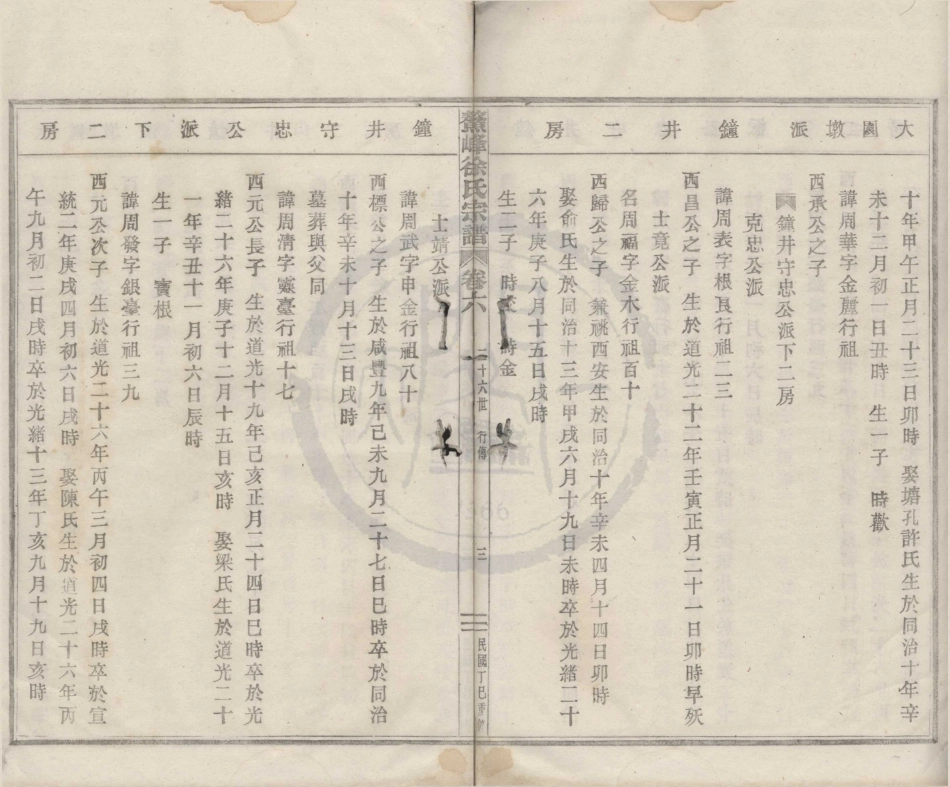 大園墩派 鐘井二房
十年甲午正月二十三日卯時 娶塘孔許氏生於同治十年辛
未十二月初一日丑時 生一子 時歡
諱周華字金薰行祖
西承公之子
鐘井守忠公派下二房
克忠公派
諱周表字根良行祖二三
西昌公之子 生於道光二十二年壬寅正月二十一日卯時早殀
士竟公派
名周福字金木行祖百十
西歸公之子 兼祧西安生於同治十年辛未四月十四日卯時
娶俞氏生於同治十三年甲戌六月十九日未時卒於光緒二十
六年庚子八月十五日戌時
生二子 時 時金
鰲峰徐氏宗譜 卷六 二十六世 行傳 三 民國丁巳重
鐘井守忠公派下二房
士靖公派
諱周武字申金行祖八十
西標公之子 生於咸豐九年己未九月二十七日巳時卒於同治
十年辛未十月十三日戌時
墓葬與父同
諱周清字臺行祖十七
西元公長子 生於道光十九年己亥正月二十四日巳時卒於光
緒二十六年庚子十二月十五日亥時 娶梁氏生於道光二十
一年辛丑十一月初六日辰時
生一子 寳根
諱周發字銀臺行祖三九
西元公次子 生於道光二十六年丙午三月初四日戌時卒於宣
統二年庚戌四月初六日戌時 娶陳氏生於道光二十六年丙
午九月初二日戌時卒於光緒十三年丁亥九月十九日亥時